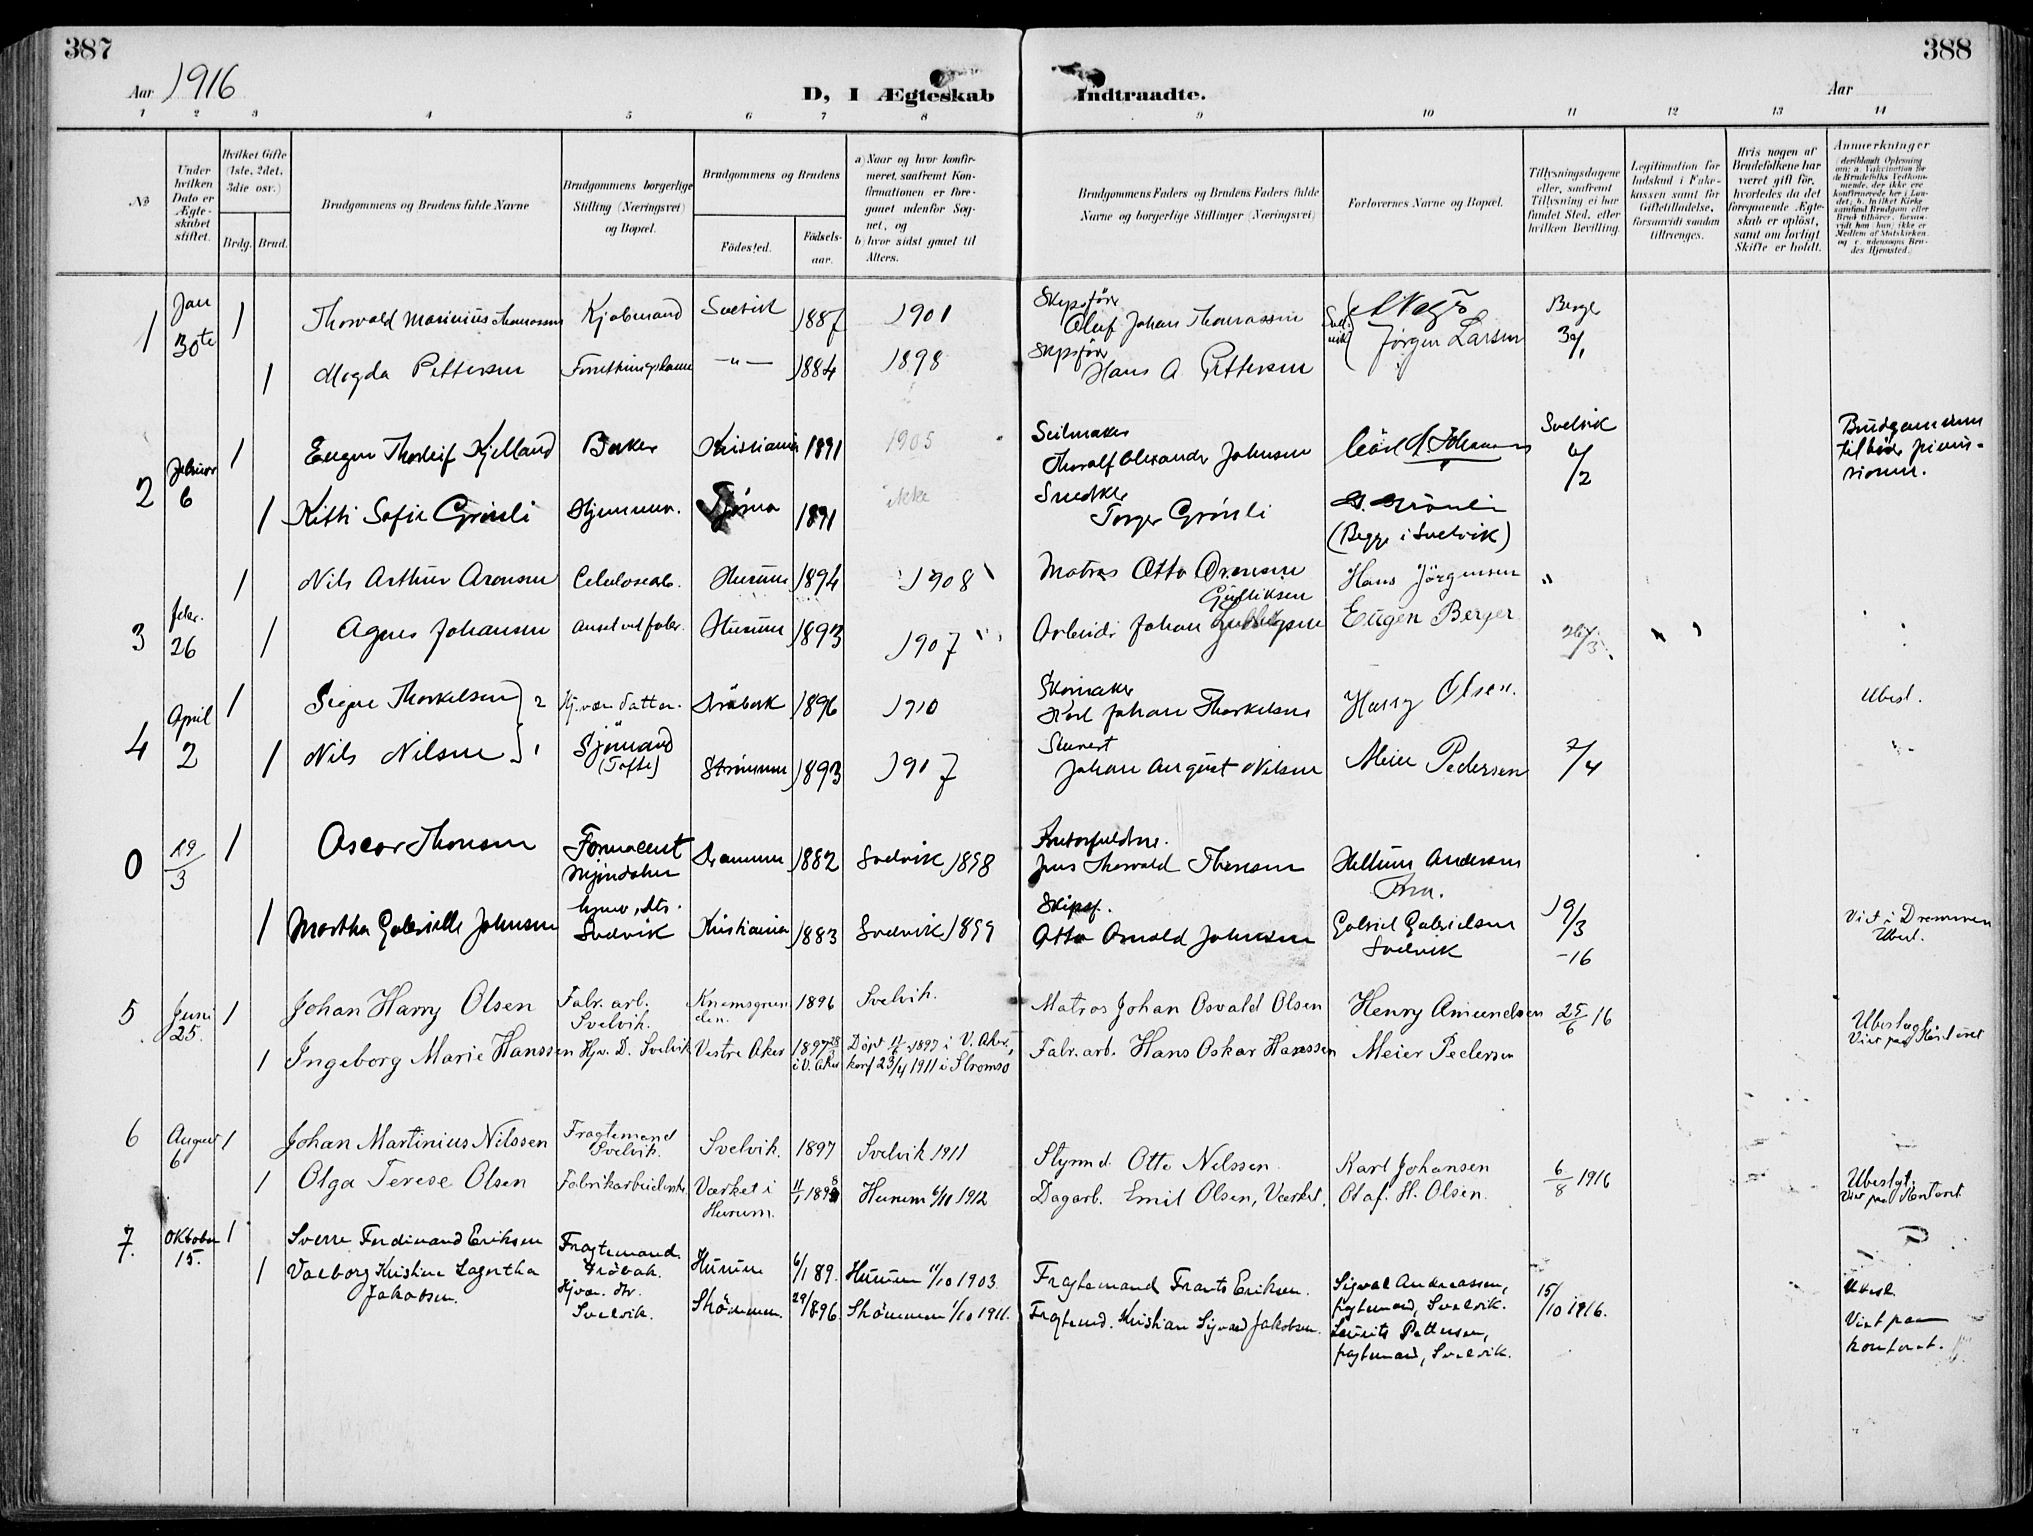 387
388
Aar 1916
D, I Ægteskab Indtraadte.
Aar
1 2 3 4 5 6 7 8 9 10 11 12 13 14
No
Under hvilken Dato er Ægteskabet stiftet.
Hvilket Gifte (1ste, 2det, 3die osv.)
Brdg. Brud.
Brudgommens og Brudens fulde Navne
Brudgommens borgerlige Stilling (Næringsvei) og Bopæl.
Brudgommens og Brudens
Fødested.
Fødselsaar.
a) Naar og hvor konfirmeret, saafremt Konfirmationen er foregaaet udenfor Sognet, og
b) hvor sidst gaaet til Alters.
Brudgommens Faders og Brudens Faders fulde Navne og borgerlige Stillinger (Næringsvei)
Forlovernes Navne og Bopæl.
Tillysningsdagene eller, saafremt Tillysning ei har fundet Sted, efter hvilken Bevilling.
Legitimation for Indskud i Enkekassen samt for Giftetilladelse, forsaavidt saadan tiltrænges.
Hvis nogen af Brudefolkene har været gift før, hvorledes da det foregaaende Ægteskab er opløst, samt om lovligt Skifte er holdt.
Anmerkninger
1 Jan 30te 1 Thorvald Marinius Thomassen Kjøbmand Svelvik 1887 1901 Skipsfører Oluf Johan Thomassen
Jørgen Larsen Berge 30/1
1 Magda Pettersen Forretningsdame -"- 1884 1898 Skipsfører Hans A. Pettersen
2 Februar 6 1 Eugen Thorleif Kjelland Baker Kristiania 1891 1905 Seilmaker Thoralf Alexander Johnsen Carl A. Johannes Svelvik 6/2
1 Kitti Sofie Grønli Hjemmev. 1891 ikke Snedker Torger Grønli
(Begge i Svelvik)
Brudgommen
3 febr. 26 1 Nils Arthur Aronsen Celulosearb. Hurum 1894 1908 Matros Otto Hans Jörgensen "
Gulliksen
1 Agnes Johansen Hurum 1893 1907 Arbeider Johan Eugen Berger
4 April 2 1 Signe Thorkelsen } 2 Hj. vær. datter. Drøbak 1896 1910 Skomaker Karl Johan Thorkelsen Harry Olsen. Ubesl.
1 Nils Nilsen } 1 Sjømand (Tofte) Strømmen 1893 1907 Johan August Nilsen Meier Pedersen 2/4 "
0 19/3 1 Oscar Thonsen Mjøndalen Drammen 1882 Svelvik 1898 Jens Thorvald Thonsen Andersen
1 Martha Gabrielle Johnsen Svelvik Kristiania 1883 Svelvik 1899 Skipsf. Otto Arnold Johnsen Gabriel Gabrielsen Svelvik 19/3 -16 Viet i Drammen Ubesl.
5 Juni 25. 1 Johan Harry Olsen Fabr. arb. Svelvik. 1896 Svelvik. Matros Johan Osvald Olsen Henry Amundsen 25/6 16
1 Ingeborg Marie Hanssen Hjv. D. Svelvik Vestre Aker 1897 i V. Aker Døpt 1897 i V. Aker, konf 23/4 1911 i Strømsø Fabr. arb. Hans Oskar Hanssen Meier Pedersen Ubeslegt. Viet paa Kontoret
6 August 6 1 Johan Martinius Nilssen Fragtemand Svelvik. Svelvik. 1897 Svelvik 1911 Styrmd. Otto Nilssen. Karl Johansen 6/8 1916
1 Olga Terese Olsen Fabrikarbeiderske Værket i Hurum. Hurum 6/10 1912 Dagarb. Emil Olsen, Værket. Olaf. H. Olsen. Ubeslgt. Viet paa Kontoret.
7. Oktober 15. 1 Sverre Ferdinand Eriksen Fragtemand. Drøbak. Hurum 6/1 89. Hurum 11/10 1903. Fragtemand Frants Eriksen. Sigval Andreassen, fragtemand, Svelvik. 15/10 1916. Ubesl.
1 Valborg Kristine Lagertha Jakobsen. Hjvær. dtr. Svelvik. 29/8 96 Fragtemd. Kristian Sigvard Jakobsen. Laurits Pettersen, fragtemand, Svelvik. Viet paa kontoret.